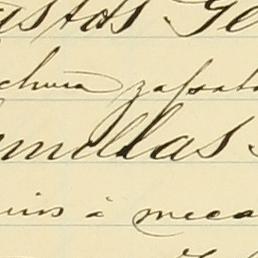 astos Ge
chura zapato
millas
uis á meca